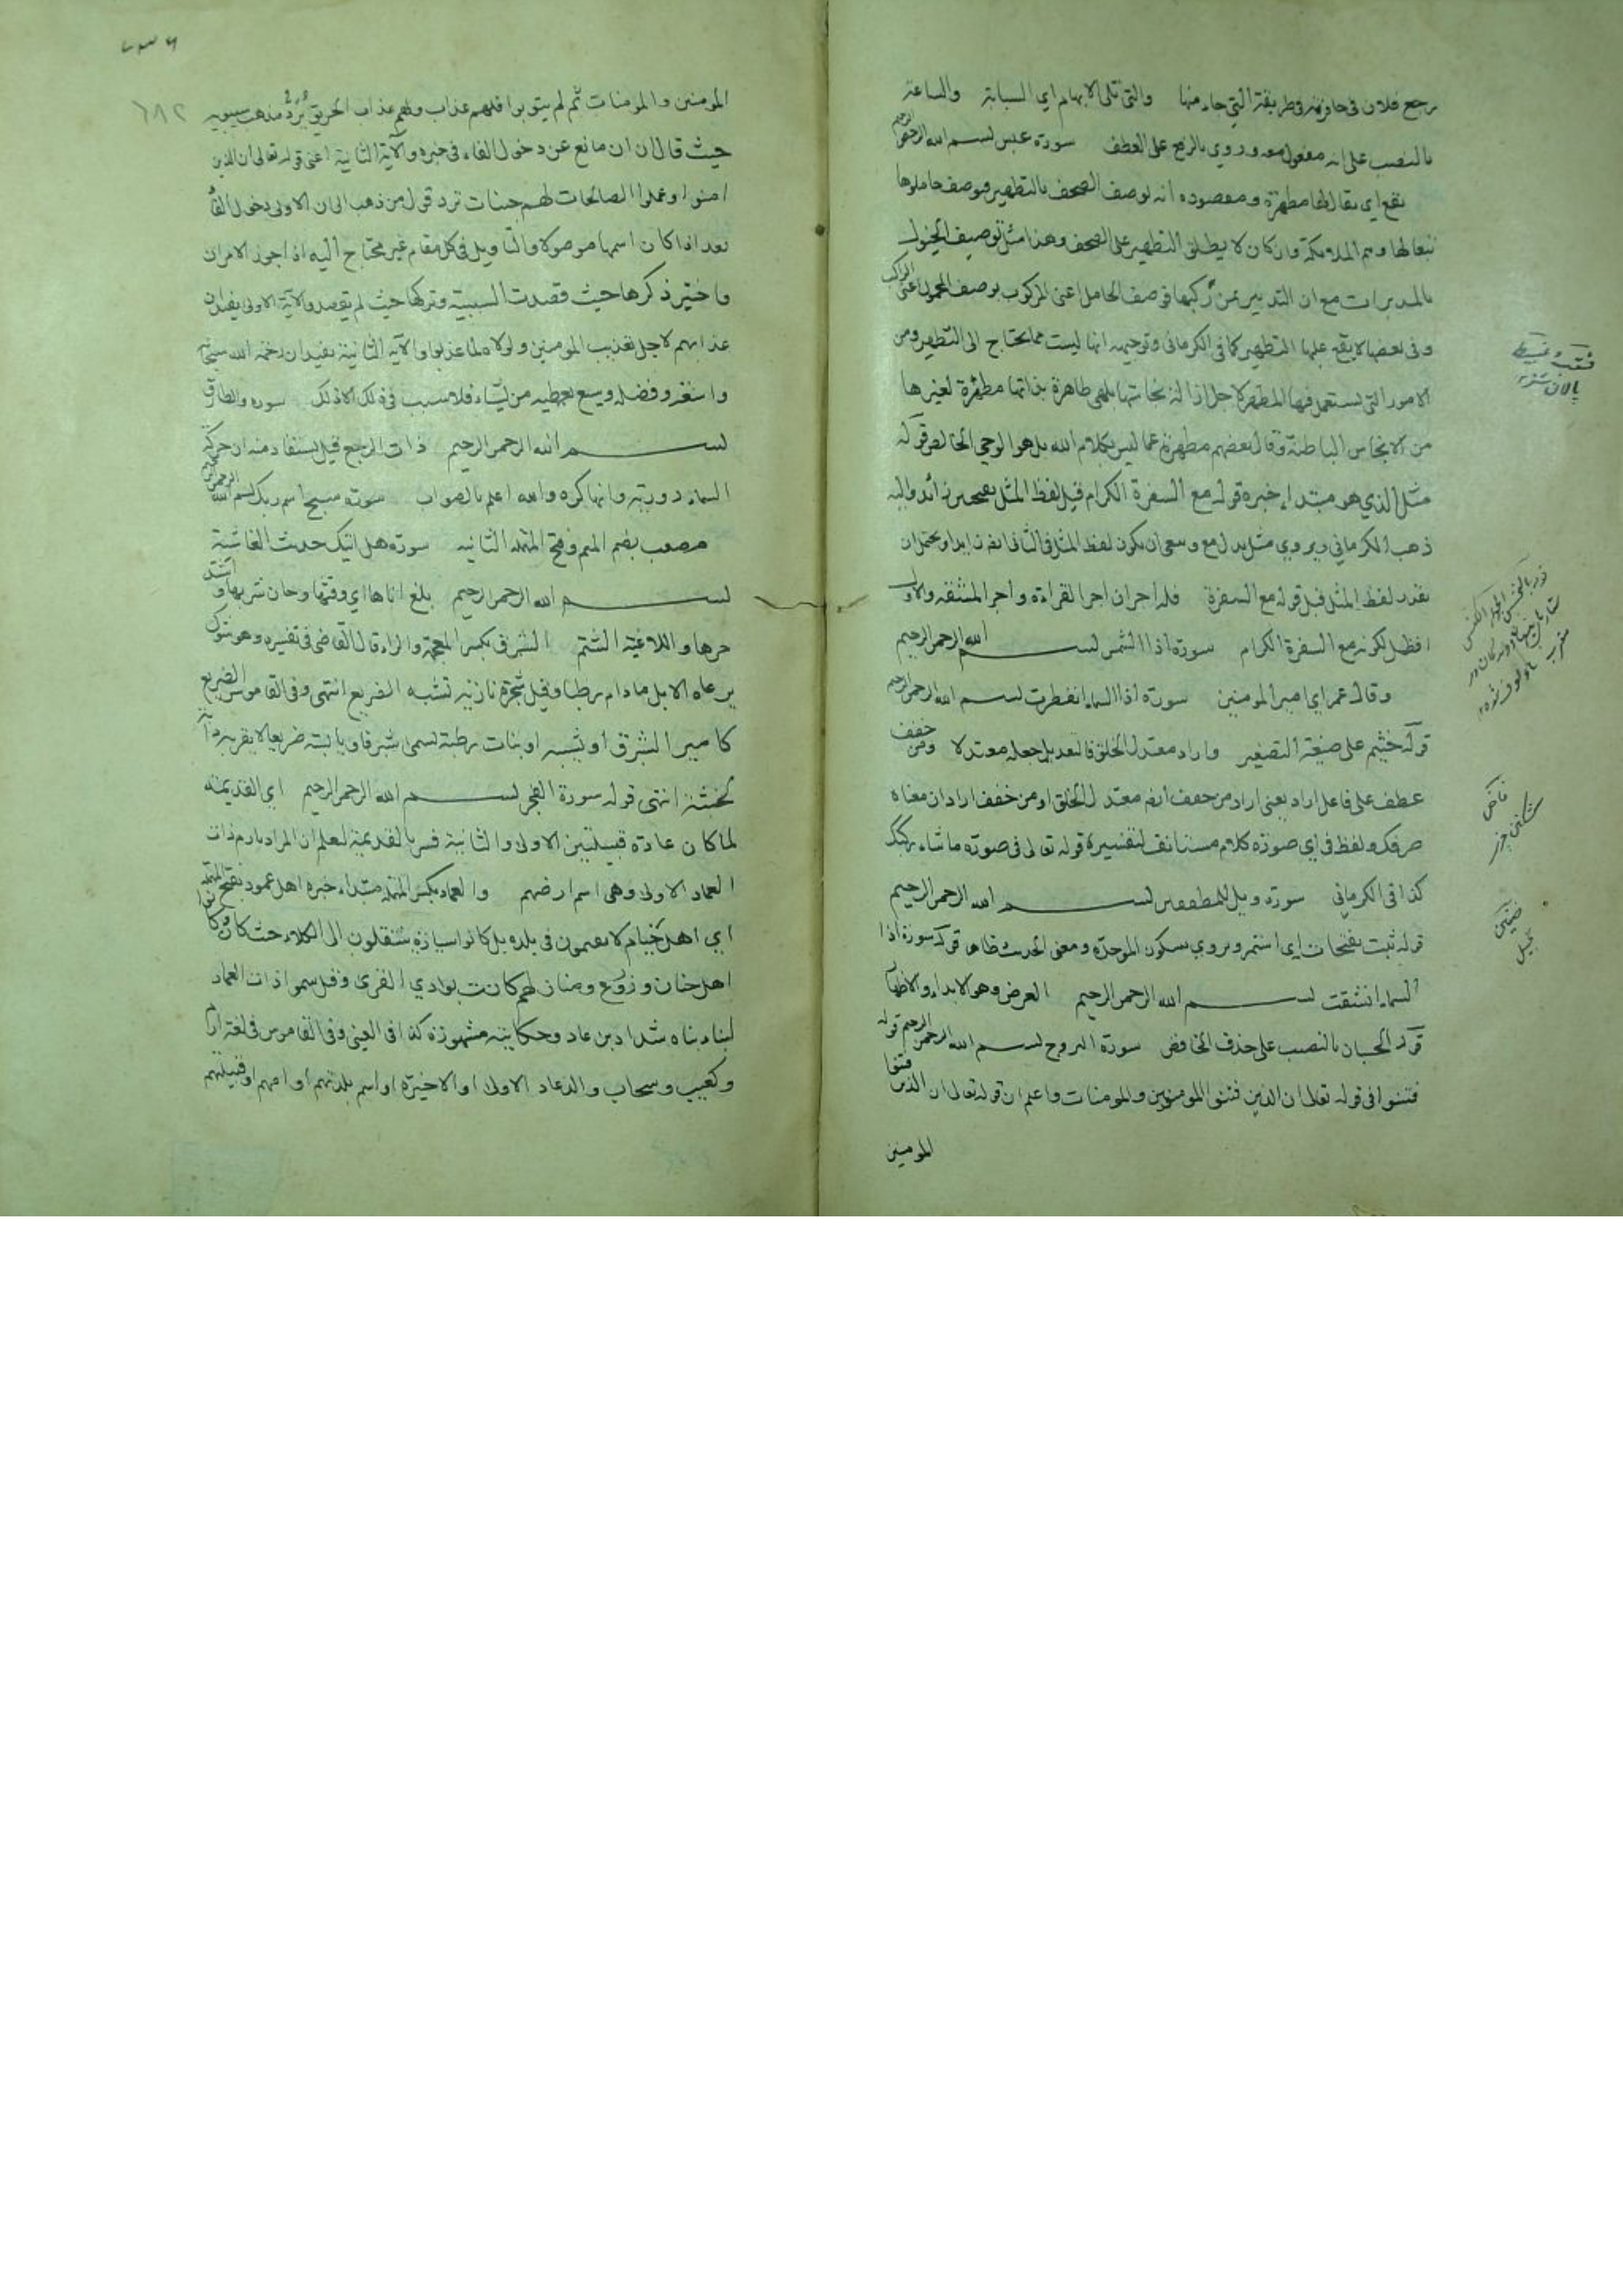 يرجع فلان في حافرته في طريقته التي جاء منها والتي تلي الابهام اي السبابة والساعة
بالنصب على انه مفعول معه وروي بالرفع على العطف سورة عبس بسم الله الرحمن الرحيم
يقع اي يقال لها مطهرة ومقصوده انه لوصف الصحف بالتطهير فوصف حاملوها
تبعا لها وهم الملائكة وان كان لا يطلق التطهير على الصحف وهذا مثل توصيف الخيول
بالمدبرات مع ان التدبير لمن ركبها فوصف الحامل اعني المركوب بوصف المحمول اعني الراكب
وفي بعضها لا يقع عليها التطهير كما في الكرماني وتوجيهه انها ليست مما يحتاج الى التطهير ومن
الامور التي يستعمل فيها المطهر لاجل ازالة نجاستها بل هي طاهرة بذاتها مطهرة لغيرها
من الانجاس الباطنة وقال بعضهم مطهرة عما ليس بكلام الله بل هو الوحي الخالص قوله
مثل الذي هو مبتداء خبره قوله مع السفرة الكرام قيل لفظ المثل بفتحتين زائد واليه
ذهب الكرماني ويروي مثل بدل مع وينبغي ان يكون لفظ المثل في الثاني ايضا زايدا ويحتمل ان
يقدر لفظ المثل قبل قوله مع السفرة فله اجران اجر القراءة واجر المشقة والاول
افضل لكونه مع السفرة الكرام سورة اذا الشمس بسم الله الرحمن الرحيم
وقال عمر اي امير المومنين سورة اذا السماء انفطرت بسم الله الرحمن الرحيم
قوله خثيم على صيغة التصغير واراد معتدل الخلق فالتعديل جعله معتدلا ومن خفف
عطف على فاعل اراد يعني اراد من خفف ايضا معتدل الخلق او من خفف اراد ان معناه
صرفك ولفظ في اي صورة كلام مستانف لتفسيره قوله تعالى في صورة ما شاء ركبك
كذا في الكرماني سورة ويل للمطففين بسم الله الرحمن الرحيم
قوله ثبت بفتحات اي استمر ويروي بسكون الموحدة ومعنى الحديث ظاهر قوله سورة اذا
السماء انشقت بسم الله الرحمن الرحيم العرض وهو الابداء والاظهار
قوله الحسبان بالنصب على حذف الخافض سورة البروج بسم الله الرحمن الرحيم قوله
فتنوا في قوله تعالى ان الذين فتنوا المومنين والمومنات واعلم ان قوله تعالى ان الذين فتنوا
المومنين
المومنين والمومنات ثم لم يتوبوا فلهم عذاب ولهم عذاب الحريق يرد مذهب سيبويه
حيث قال ان ان مانع عن دخول الفاء في خبره والآية الثانية اعني قوله تعالى ان الذين
امنوا وعملوا الصالحات لهم جنات ترد قول من ذهب الى ان الاولى دخول الفاء
بعد اذا كان اسمها موصولا والتاويل في كل مقام غير محتاج اليه اذا جوز الامران
واختير ذكرها حيث قصدت السببية وتركها حيث لم يقصد والآية الاولى يفيد ان
عذابهم لاجل تعذيب المومنين ولولاه لما عذبوا والآية الثانية يفيد ان رحمة الله سبحانه
واسعة وفضله وسيع يعطيه من يشاء فلا سبب في ذلك الا ذلك سورة والطارق
بسم الله الرحمن الرحيم ذات الرجع قيل يستفاد منه ان حركة
السماء دورية وانها كره والله اعلم بالصواب سورة سبح اسم ربك بسم الله الرحمن
مصعب بضم الميم وفتح المهملة الثانية سورة هل اتيك حديث الغاشية
بسم الله الرحمن الرحيم بلغ اناها اي وقتها وحان شربها واشتد
حرها واللاغية الشتم الشبرق بكسر المعجمة والراء قال القاضي في تفسيره وهو شوك
يرعاه الابل ما دام رطبا وقيل شجرة نارية تشبه الضريع انتهى وفي القاموس الضريع
كامير الشبرق او يبيسه او نبات رطبة يسمى شبرقا ويابسة ضريعا لا يقربه دابة
لخبثه انتهى قوله سورة الفجر بسم الله الرحمن الرحيم اي القديمة
لما كان عادة قبيلتين الاولى والثانية فسر بالقديمة ليعلم ان المراد بارم ذات
العماد الاولى وهي اسم ارضهم والعماد بكسر المهملة مبتداء خبره اهل عمود بفتح المهملة
اي اهل خيام لا يقيمون في بلدة بل كانوا سيارة ينتقلون الى الكلاء حيث كان وكانوا
اهل جنان وزروع ومنازلهم كانت بوادي القرى وقيل سموا ذات العماد
لبناء بناه شداد بن عاد وحكايته مشهورة كذا في العيني وفي القاموس في لغة ارم
وكعنب وسحاب والد عاد الاولى او الاخيرة او اسم بلدتهم او امهم او قبيلتهم